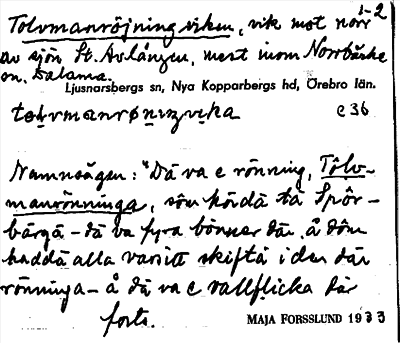 1-2
Tolvmanröjningsviken, vik mot norr
av sjön St. Avlången, mest inom Norrbärke
sn. Dalarna.
Ljusnarsbergs sn, Nya Kopparbergs hd, Örebro län.
c 36
Namnsägen: "Dä va e rönning, Tôlv-
manrönninga, sôm hördä tä Spôr-
bärgä – dä va fyra bönner där å dôm
haddä alla varsitt skiftä i den där
rönninga – å dä va e vallflicka där
forts.
MAJA FORSSLUND 1933